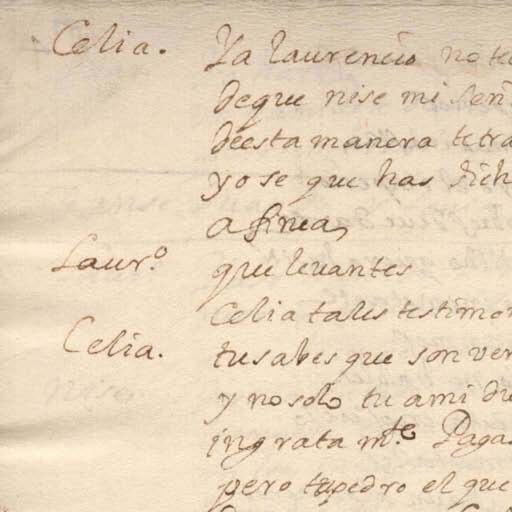 Celia. Ya laurencio no te
deque nise mi señ
deesta manera te tra
yo se que has dich
a finea,
Laur.º que leuantes
Celia tales testimo
Celia. tu sabes que son ver
y no solo tu ami du
ingrata m.te Paga
pero tu pedro el que